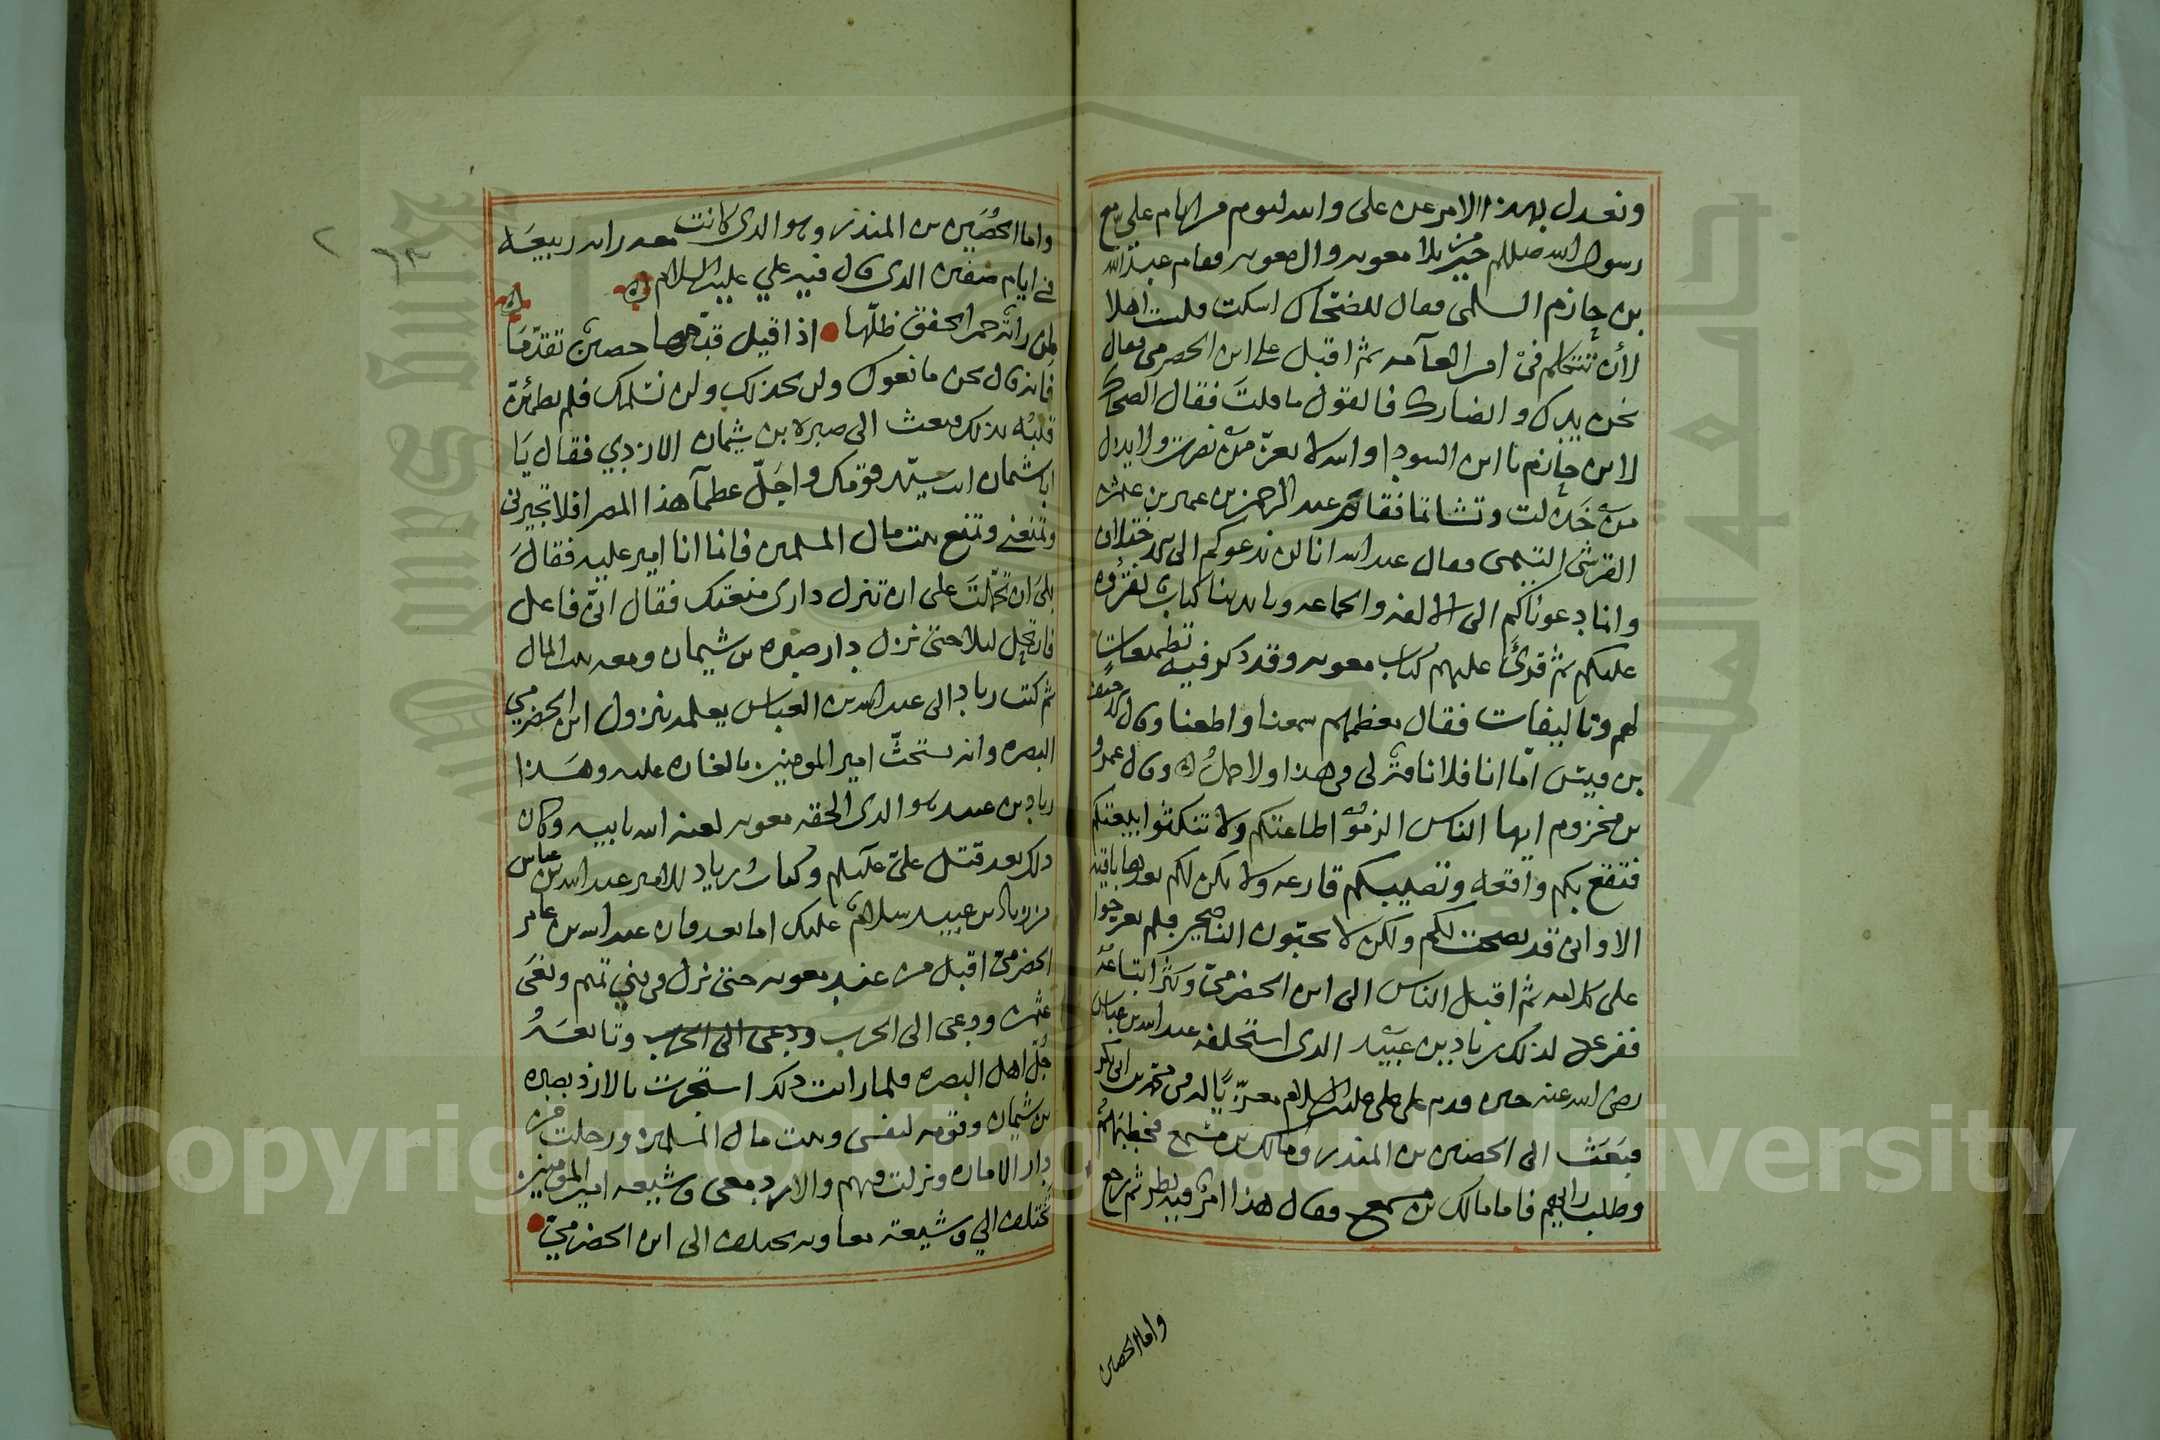 ونعدل بهذا الامر عن علي والله ليوم من ايام علي مع
رسول الله صللم خير من بلا معويه وال معويه فقام عبد الله
بن حازم السلمي فقال للضحاك اسكت فلست اهلا
لأن تتكلم في امر العامه ثم اقبل على ابن الحضرمي فقال
نحن يدك وانصارك فالقول ما قلت فقال الضحاك
لابن حازم يا ابن السودا والله لا يعز من نصرت ولا يذل
من خذلت وتشاتما فقام عبد الرحمن بن عمير بن عثمن
القرشي التيمي فقال عبد الله انا لن ندعوكم الى
وانما دعوناكم الى الالفه والجماعه وبايدينا كتاب نقرؤه
عليكم ثم قرئ عليهم كتاب معويه وقد ذكر فيه تطميعات
لهم وتاليفات فقال بعظهم سمعنا واطعنا وقال
بن قيس اما انا فلا ناقة لي في هذا ولا جمل وقال عمرو
بن مخزوم ايها الناس الزموا طاعتكم ولا تنكثوا بيعتكم
فتقع بكم واقعة وتصيبكم قارعه ولا يكن لكم بعدها باقيه
الا واني قد نصحت لكم ولكن لا تحبون الناصحين فلم يعرجوا
على كلامه ثم اقبل الناس الى ابن الحضرمي وكثر اتباعه
ففزع لذلك زياد بن عبيد الذي استخلفه عبد الله بن عباس
رضي الله عنه حين قدم على علي عليه السلام معزيا له في محمد بن ابي بكر
فبعث الى الحضين بن المنذر ومالك بن مسمع فخطبهم
وطلب رايهم فاما مالك بن مسمع فقال هذا امر فيه نظر ثم رجع
واما الحصين
واما الحضين بن المنذر وهو الذي كانت معه رايه ربيعه
في ايام صفين الذي قال فيه علي عليه السلام
لمن راية حمرا يخفق ظلها اذا قيل قدمها حصين تقدما
فانه قال نحن مانعوك ولن نخذلك ولن نسلمك فلم يطمئن
قلبه بذلك فبعث الى صبره بن شيمان الازدي فقال يا
ابا شيمان انت سيد قومك واجل عظمآ هذا المصر افلا تجيرني
وتمنعني وتمنع بيت مال المسلمين فانما انا امير عليه فقال
بلى ان تحملت على ان تنزل داري منعتك فقال اني فاعل
فارتحل ليلا حتى نزل دار صبره بن شيمان ومعه بيت المال
ثم كتب زياد الى عبد الله بن العباس يعلمه بنزول ابن الحضرمي
البصره وانه يستحث امير المومنين بالغاره عليه وهذا
زياد بن عبيد هو الذي الحقه معويه لعنه الله بابيه وكان
ذلك بعد قتل علي علیلم وكتاب زياد للامير عبد الله بن عباس
من زياد بن عبيد سلام عليك اما بعد فان عبد الله بن عامر
الحضرمي اقبل من عند معويه حتى نزل في بني تميم ونعى
عثمن ودعى الى الحرب ودعى الى الحرب وتابعه
جل اهل البصره فلما رايت ذلك استجرت بالازد بصبره
بن شيمان وقومه لنفسي وبيت مال المسلمين ورحلت من
دار الاماره ونزلت فيهم والازد معي وشيعه امير المومنين
تختلف الي وشيعة معاويه تختلف الى ابن الحضرمي
Copyright © King Saud University
King Saud University
جامعة الملك سعود